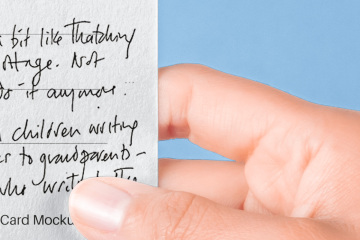 bit like Thatching
ottage. Not
do it anymore.
children writing
to grandparents -
who
Card Mocku